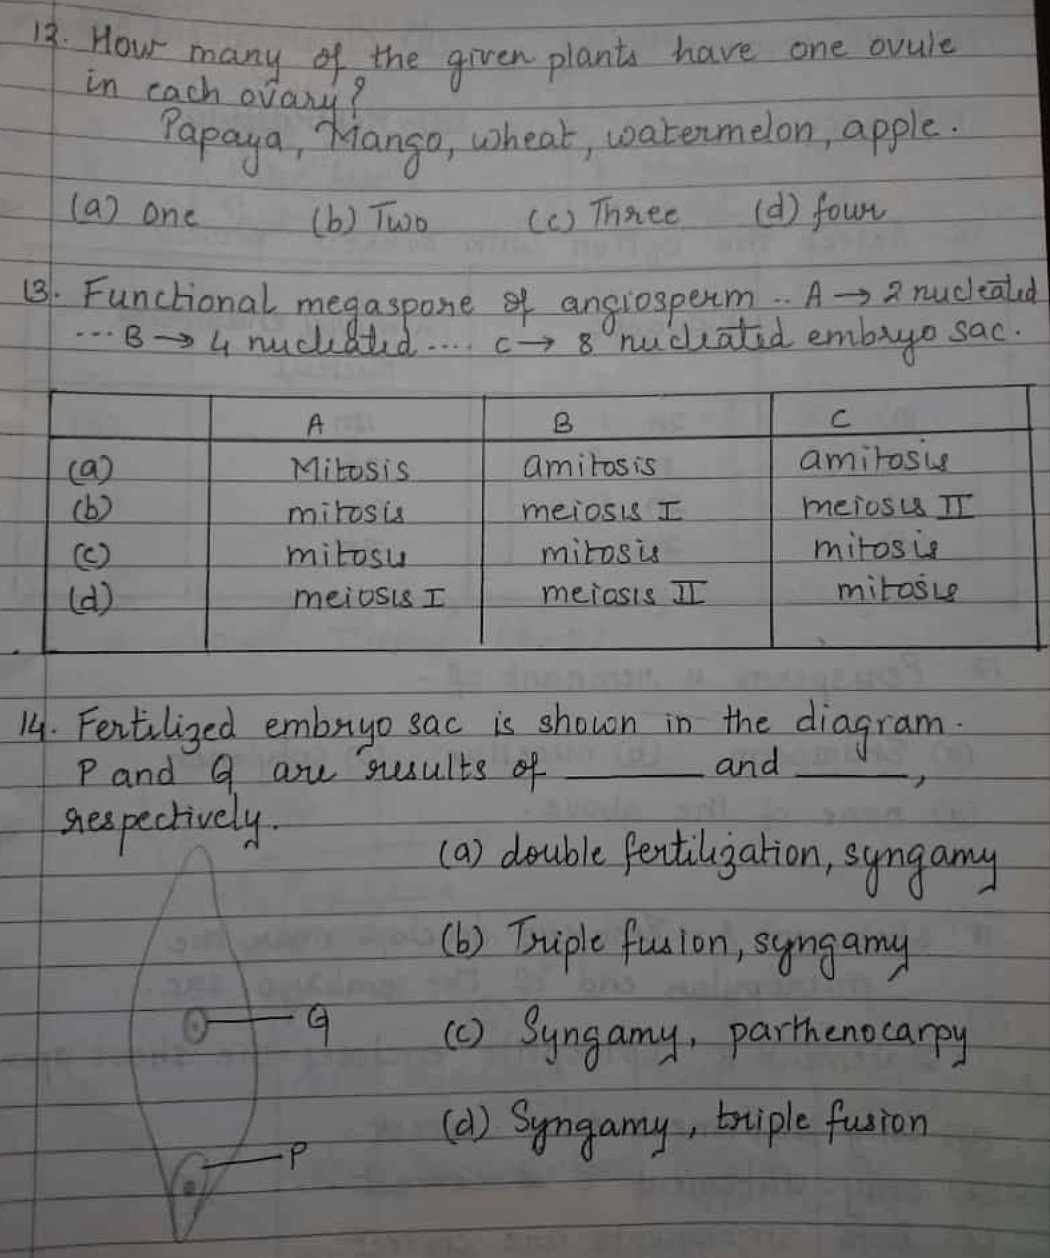 12. How many of the given plants have one ovule
in each ovary?
Papaya, Mango, wheat, watermelon, apple.
(a) one (b) Two (c) Three (d) four
13. Functional megaspore of angiosperm .. A → 2 nucleated
... B → 4 nucleated .... C → 8 nucleated embryo sac.
A B C
(a) Mitosis amitosis amitosis
(b) mitosis meiosis I meiosis II
(c) mitosis mitosis mitosis
(d) meiosis I meiosis II mitosis
14. Fertilized embryo sac is shown in the diagram.
P and Q are results of ______ and ______,
respectively.
(a) double fertilization, syngamy
(b) Triple fusion, syngamy
Q
(c) Syngamy, parthenocarpy
(d) Syngamy, triple fusion
P